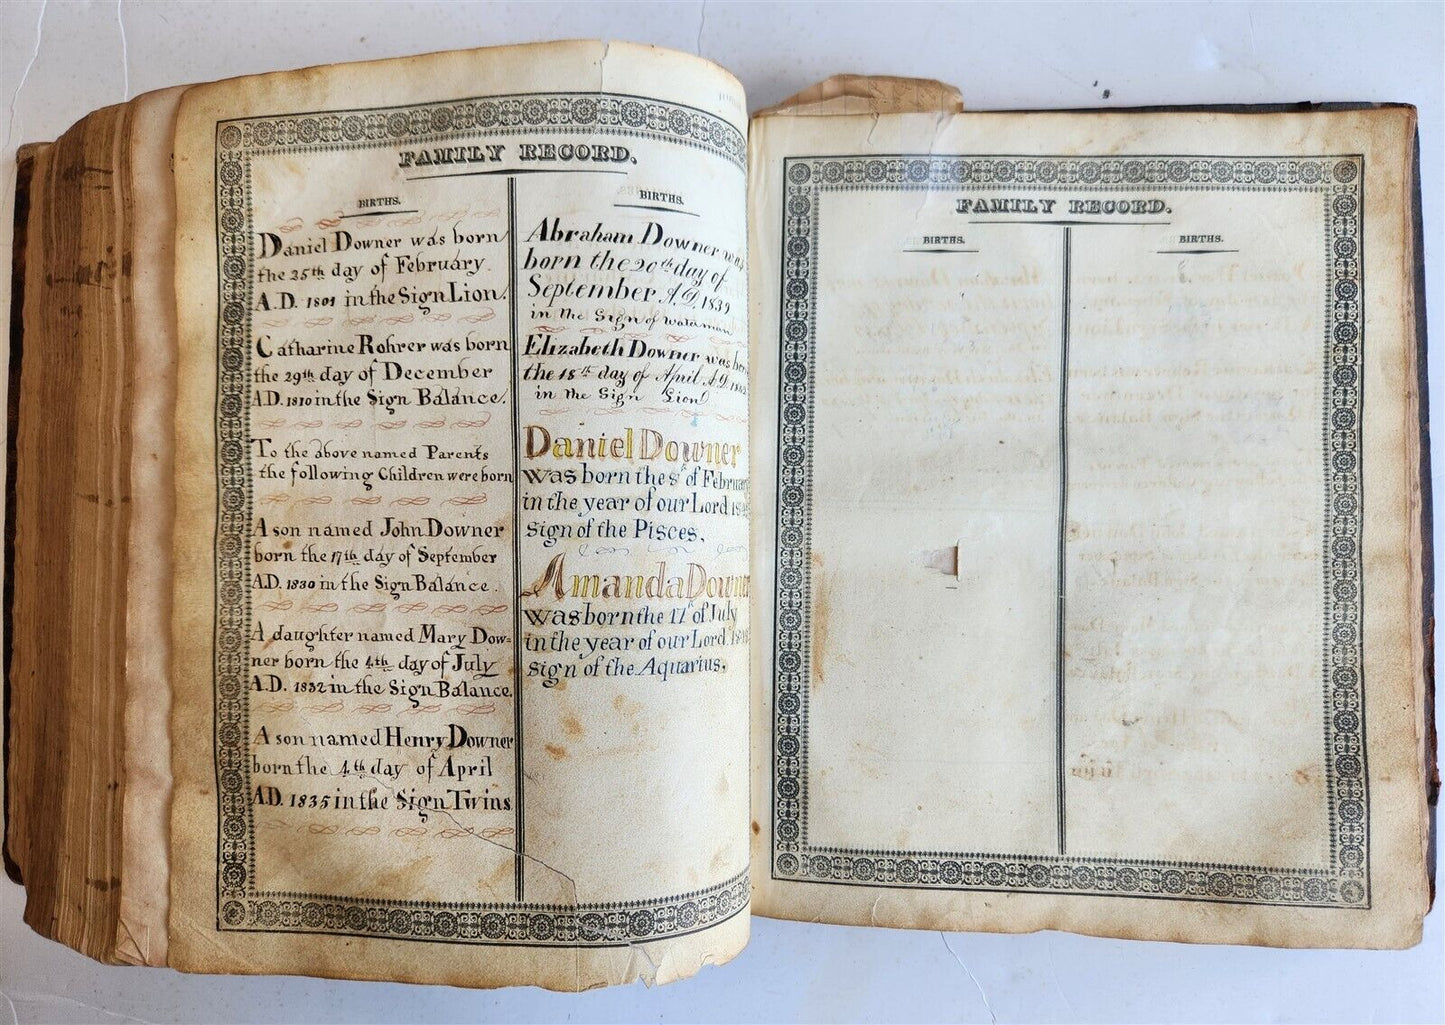 FAMILY RECORD.
BIRTHS.
Daniel Downer was born
the 25th day of February
A.D. 1801 in the Sign Lion.
Catharine Rohrer was born
the 29th day of December
A.D. 1810 in the Sign Balance.
To the above named Parents
the following Children were born
A son named John Downer
born the 17th day of September
A.D. 1830 in the Sign Balance.
A daughter named Mary Dow=
ner born the 4th day of July
A.D. 1832 in the Sign Balance.
A son named Henry Downer
born the 4th day of April
A.D. 1835 in the Sign Twins
BIRTHS.
Abraham Downer was
born the 20th day of
September A.D. 1839
in the Sign of Waterman
Elizabeth Downer was born
the 18th day of April A.D.
in the Sign Lion
Daniel Downer
was born the 8th of February
in the year of our Lord
Sign of the Pisces.
Amanda Downer
was born the 17th of July
in the year of our Lord
Sign of the Aquarius.
FAMILY RECORD.
BIRTHS.
BIRTHS.